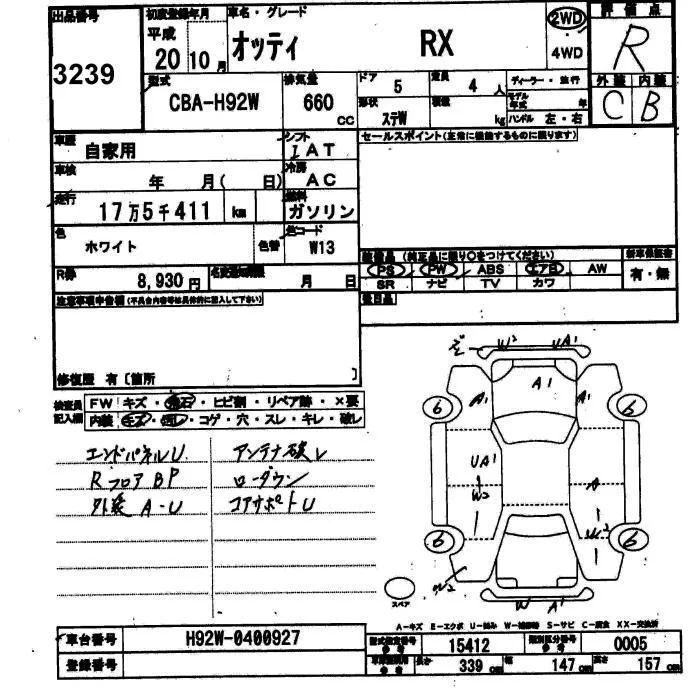 出品番号 初度登録年月 車名・グレード 2WD 評価点
3239 平成 20 10月 オッティ RX ・4WD R
型式 排気量 ドア 5 定員 4人 ディーラー・並行 外装 内装
CBA-H92W 660 CC 形状 ステW 積載 kg モデル年式 年 ハンドル 左・右 C B
車歴 自家用 シフト I AT セールスポイント(正常に機能するものに限ります)
車検 年 月( 日) 冷房 AC
走行 17万5千411 km 燃料 ガソリン
色 ホワイト 色替 色コード W13
装備品 (純正品に限り○をつけてください) 新車保証書
R券 8,930円 名変通知期限 月 日 PS PW ABS エアB AW 有・無
SR ナビ TV カワ
注意事項申告欄(不具合内容等は具体的に記入して下さい) 後日品
修復歴 有〔箇所 〕
検査員 FW キズ・飛石・ヒビ割・リペア跡・×要
記入欄 内装 キズ・汚レ・コゲ・穴・スレ・キレ・破レ
エンドパネルU アンテナ破レ
RフロアBP ローダウン
外装 A-U コアサポートU
W2 UA1
A1 A1 A1
6 6
UA1
W2 A
W2
6 6
W2
W A1
スペア
A-キズ E-エクボ U-凹み W-補修跡 S-サビ C-腐食 XX-交換済
車台番号 H92W-0400927 型式指定番号 参考 15412 類別区分番号 参考 0005
登録番号 長さ 339cm 幅 147cm 高さ 157cm